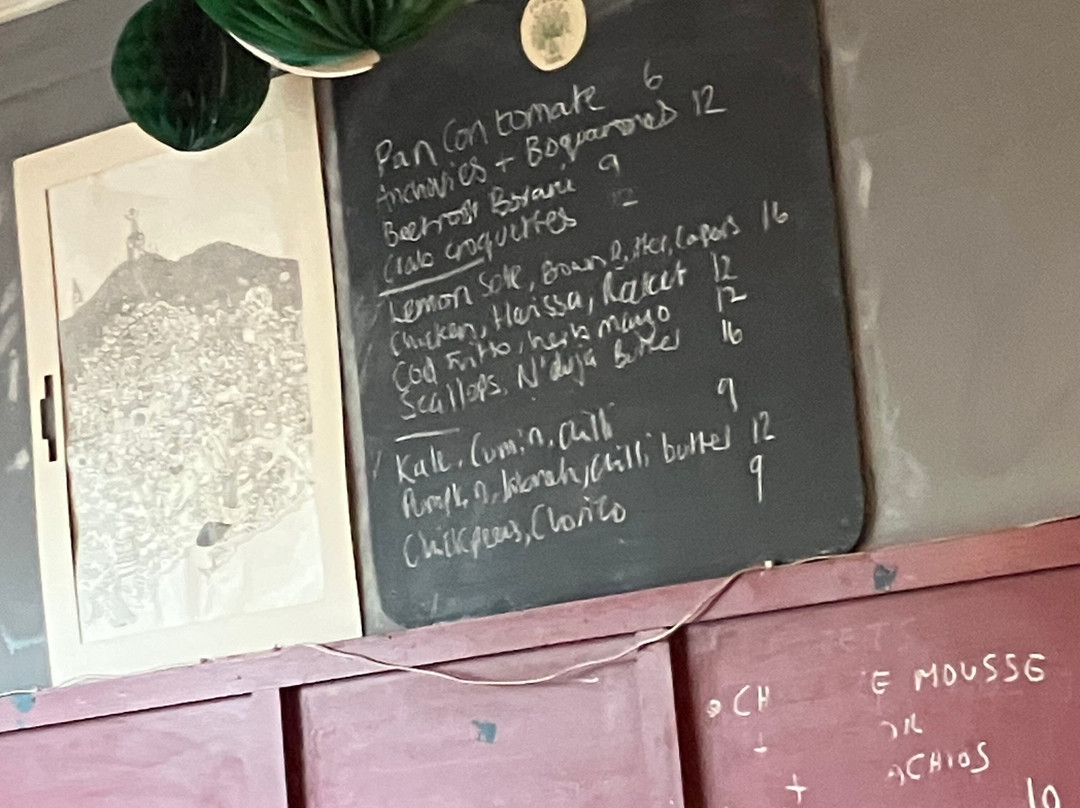 Pan Con tomate 6
Anchovies + Boquarones 12
Beetroot Borani 9
Crab croquettes 12
Lemon Sole, Brown Butter, Capers 16
Chicken, Harissa, Rocket 12
Cod Fritto, herb mayo 12
Scallops, N'duja Butter 16
Kale, Cumin, Chilli 9
Pumpkin, labneh, Chilli butter 12
Chickpeas, Chorizo 9
CH E MOUSSE
+ ACHIOS
10